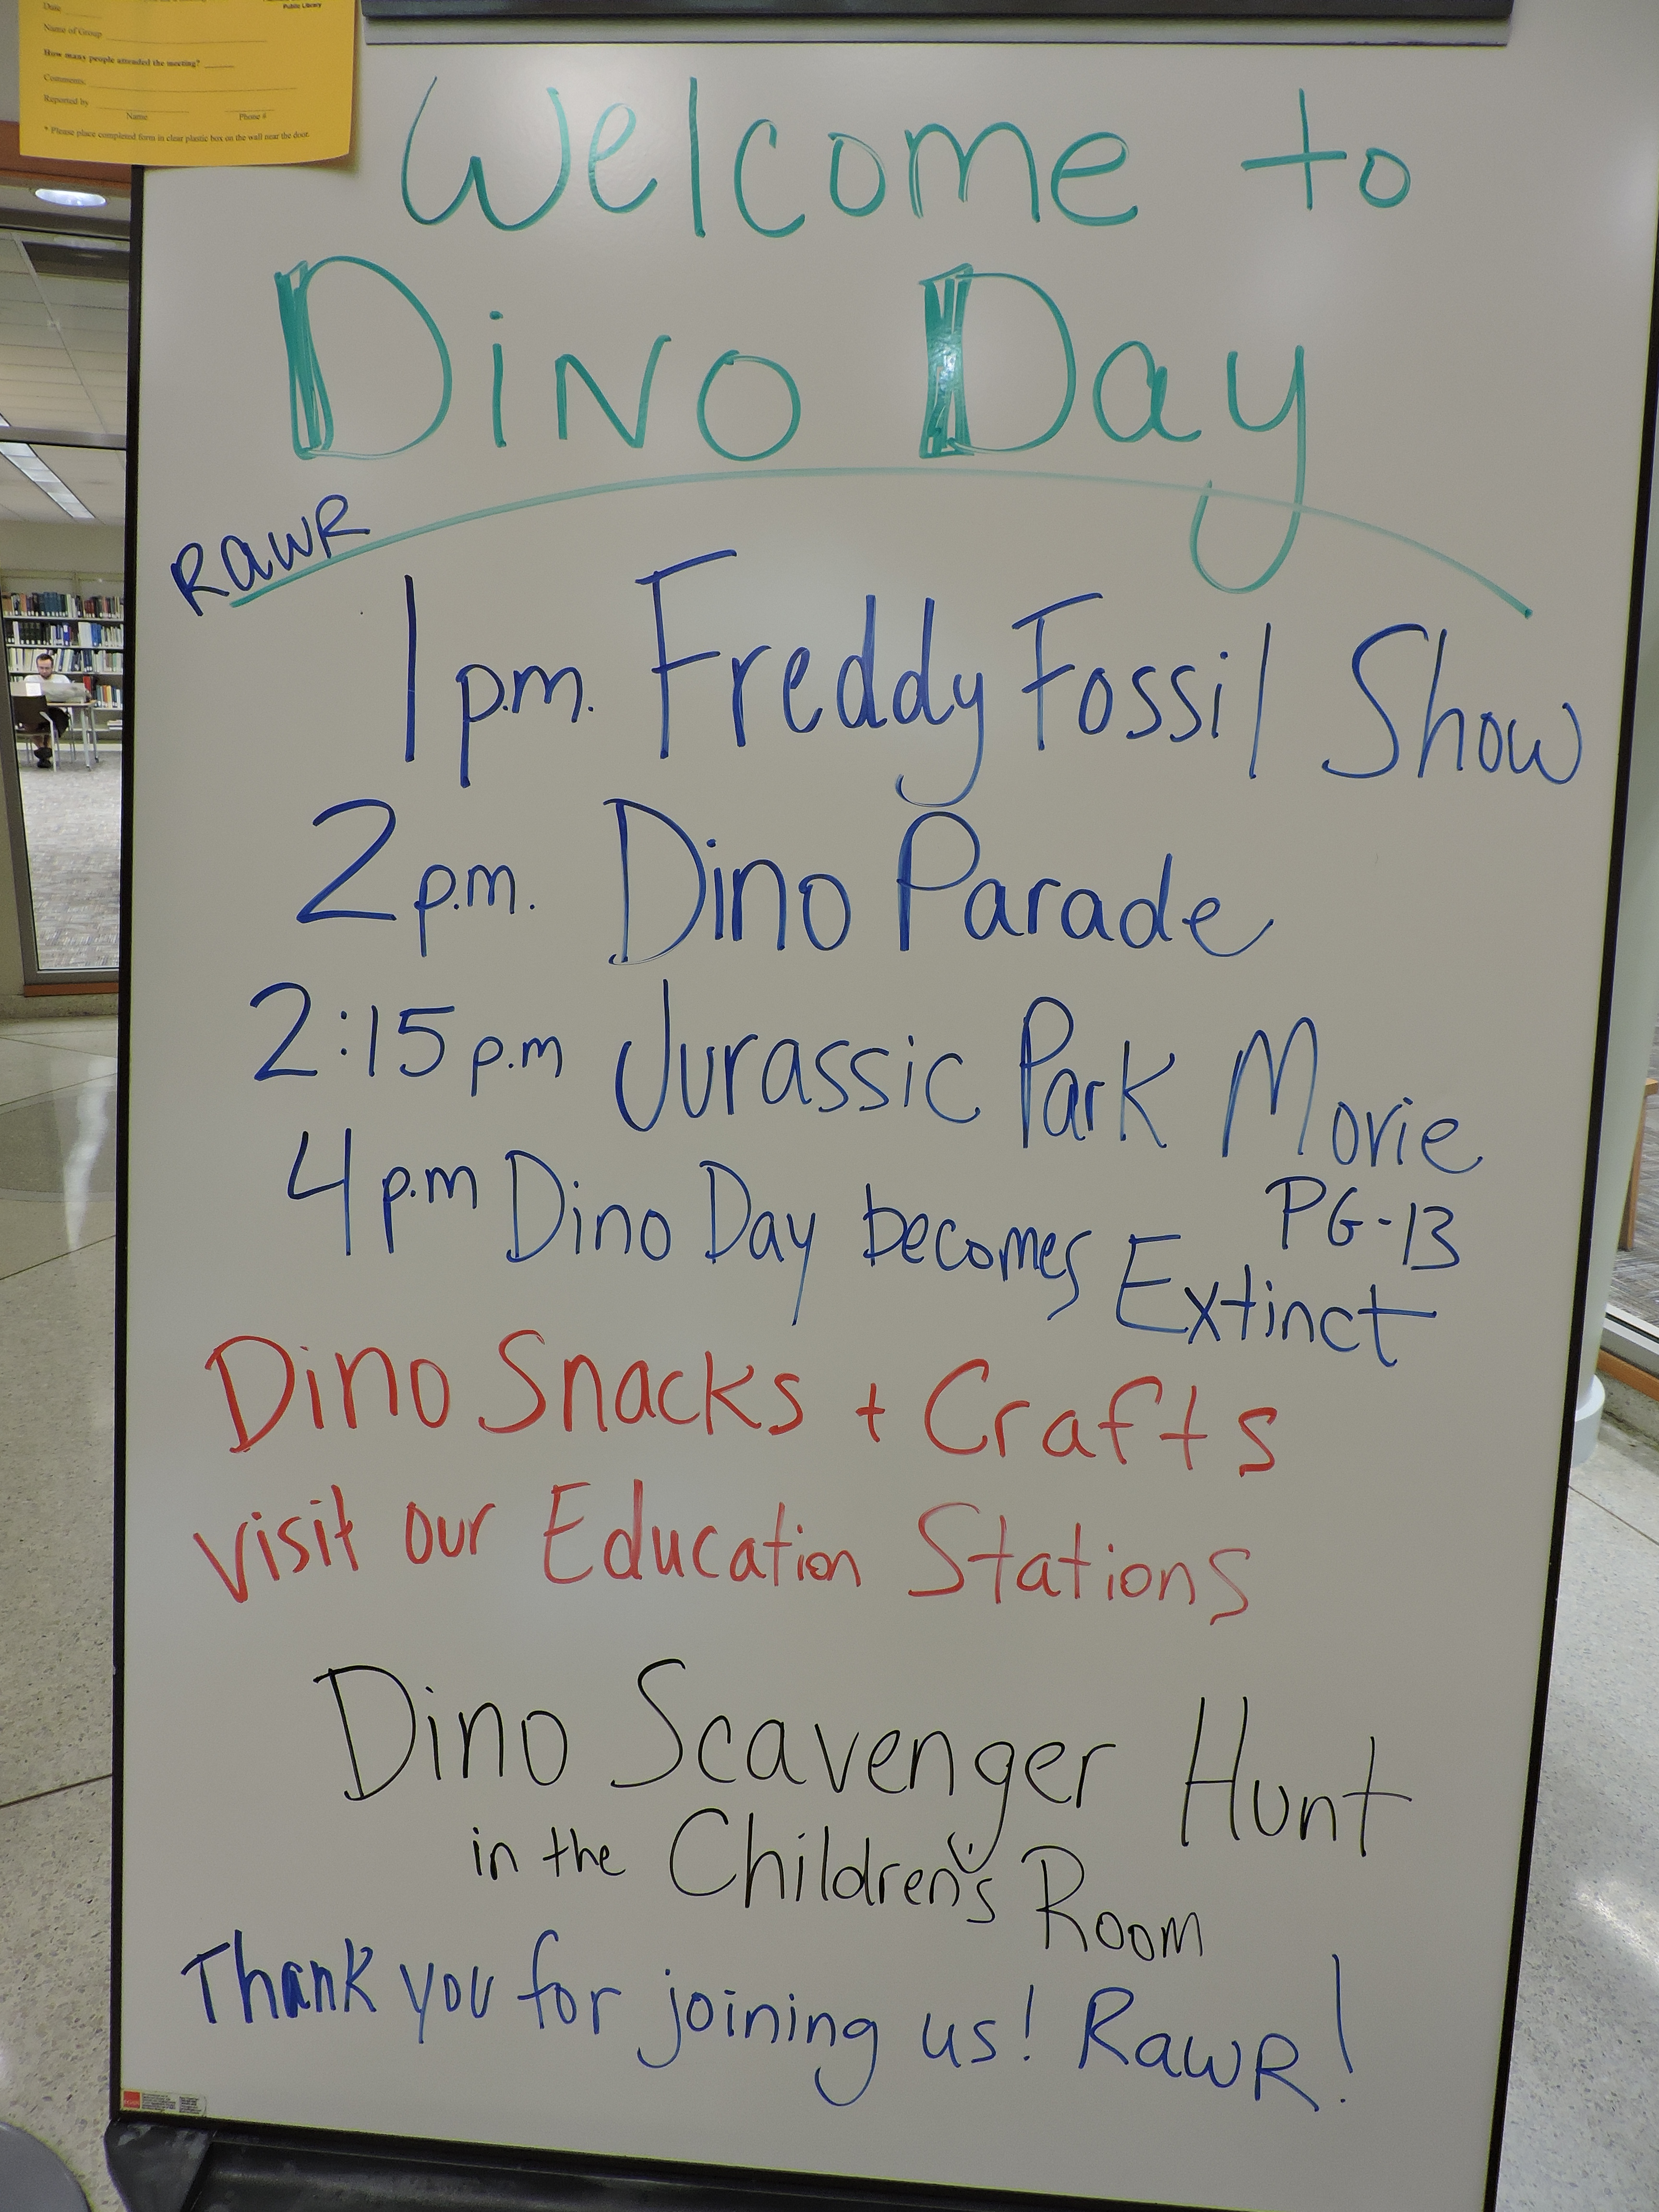 Public Library
Date
Name of Group
How many people attended the meeting?
Comments
Reported by
Name Phone #
* Please place completed form in clear plastic box on the wall near the door.
Welcome to
Dino Day
RAWR
1 p.m. Freddy Fossil Show
2 p.m. Dino Parade
2:15 p.m Jurassic Park Movie
PG-13
4 p.m Dino Day becomes Extinct
Dino Snacks + Crafts
visit our Education Stations
Dino Scavenger Hunt
in the Children's Room
Thank you for joining us! RawR!